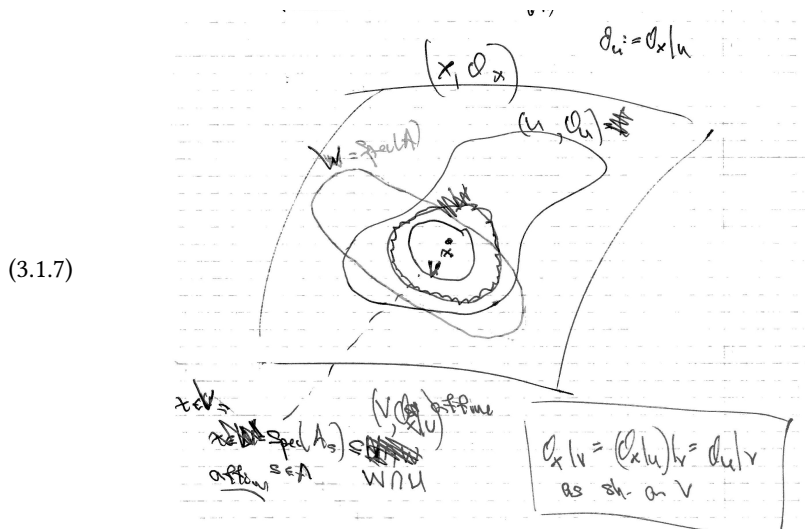 O_u := O_x|u
(X, O_x)
(U, O_u)
W = Spec(A)
(3.1.7)
x
V
x ∈ V =
Spec(A_s) ⊆
affine s ∈ A
W ∩ U
affine
O_x|v = (O_x|u)|v = O_u|v
as sh. on V